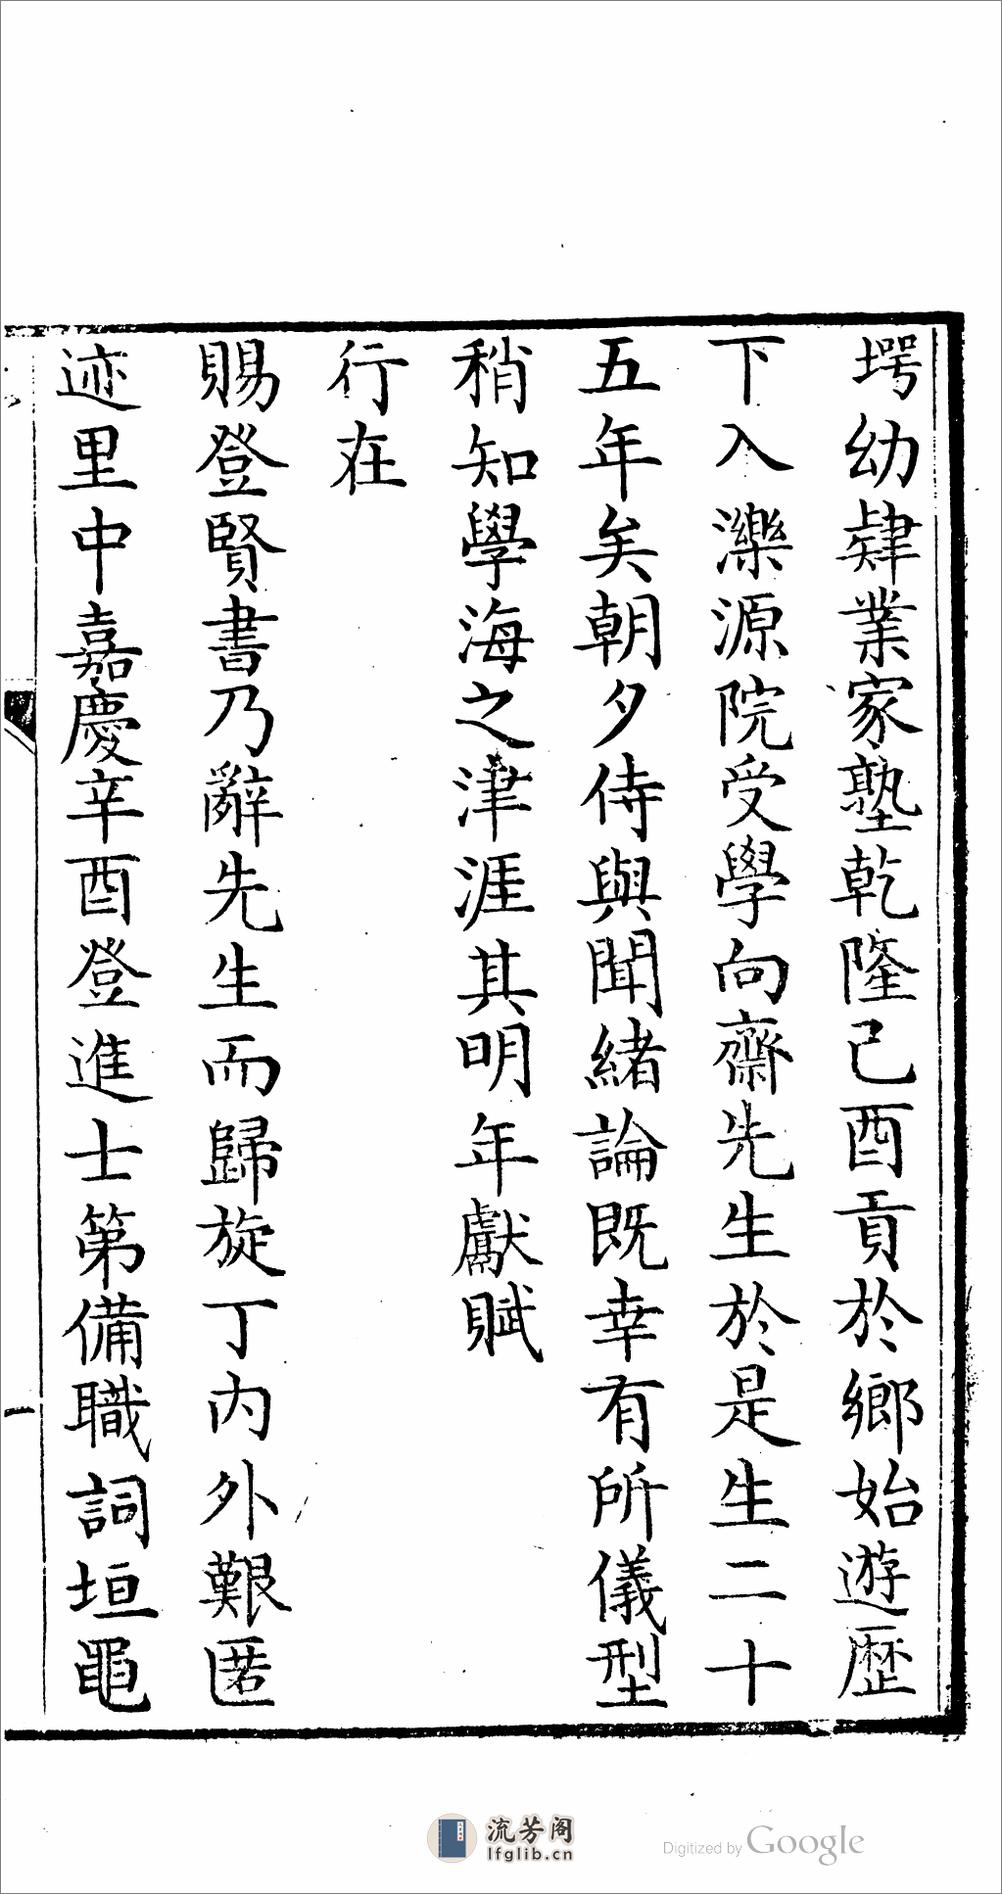 堮幼肄業家塾乾隆己酉貢於鄉始遊歷
下入濼源院受學向齋先生於是生二十
五年矣朝夕侍與聞緒論既幸有所儀型
稍知學海之津涯其明年獻賦
行在
賜登賢書乃辭先生而歸旋丁內外艱匿
迹里中嘉慶辛酉登進士第備職詞垣黽
一
流芳阁
lfglib.cn
Digitized by Google